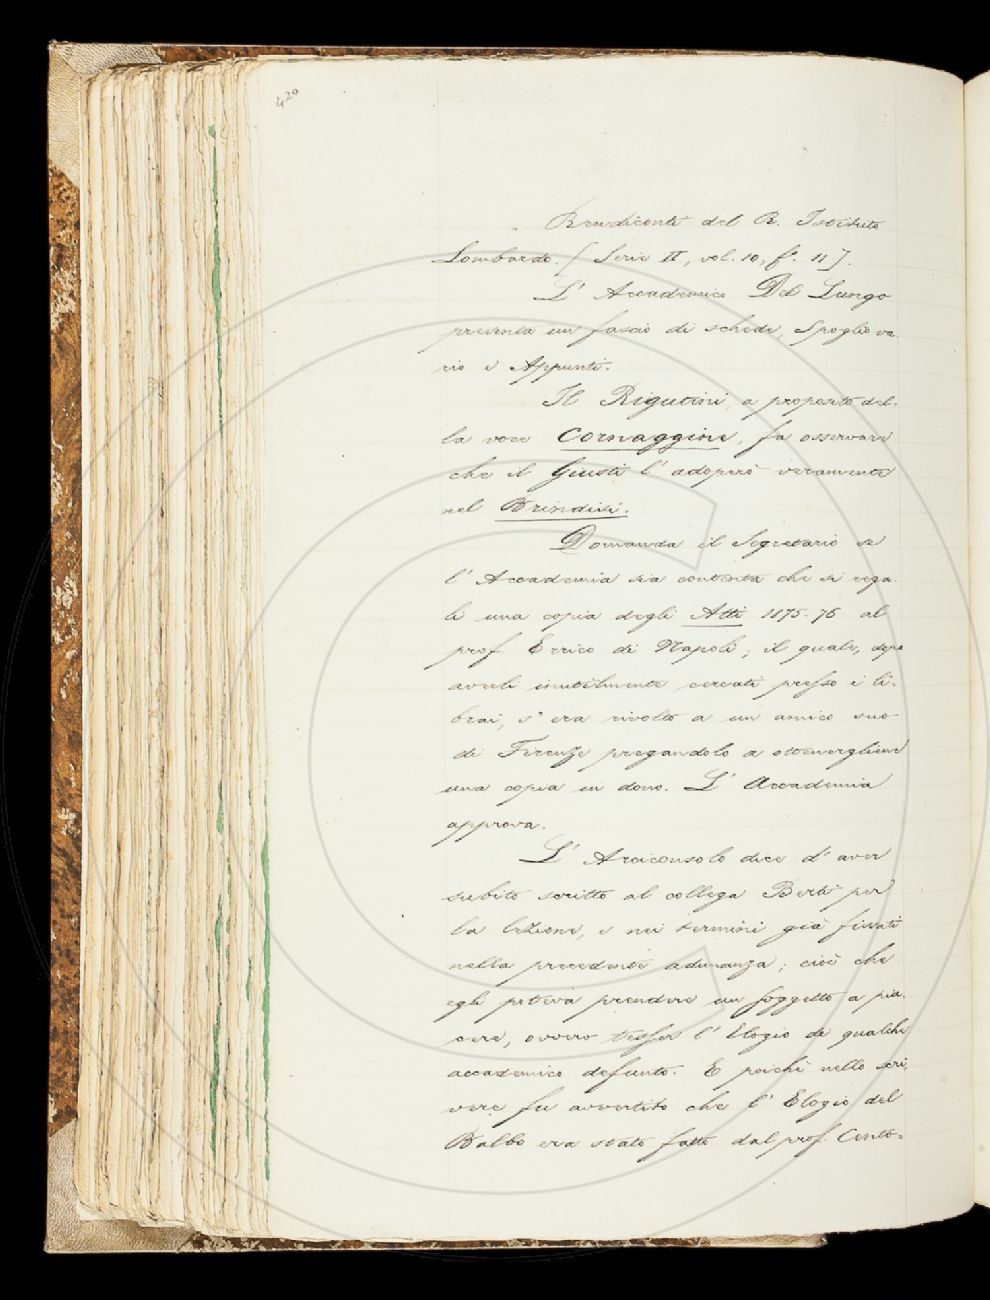 420
Rendiconti del R. Istituto
Lombardo. [Serie II, vol. 10, f.º 11].
L' Accademico Del Lungo
presenta un fascio di schede, Spoglio va-
rio e Appunti.
Il Rigutini, a proposito del-
la voce Cornaggine, fa osservare
che il Giusti l' adoperò veramente
nel Brindisi.
Domanda il Segretario se
l' Accademia sia contenta che si rega-
li una copia degli Atti 1875-76 al
prof. Errico di Napoli; il quale, dopo
averli inutilmente cercati presso i li-
brai, s' era rivolto a un amico suo
di Firenze pregandolo a ottenergliene
una copia in dono. L' Accademia
approva.
L' Arciconsolo dice d' aver
subito scritto al collega Berti per
la lezione, e nei termini già fissati
nella precedente adunanza; cioè che
egli poteva prendere un soggetto a pia-
cere, ovvero tesser l' Elogio di qualche
accademico defunto. E poichè nello scri-
vere fu avvertito che l' Elogio del
Balbo era stato fatto dal prof. Conto-